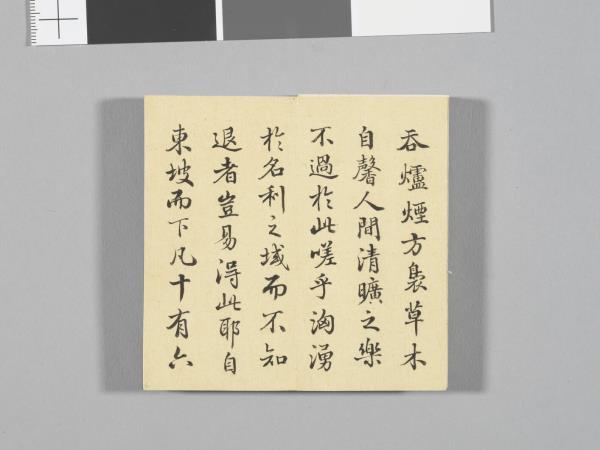 吞爐煙方裊草木
自馨人間清曠之樂
不過於此嗟乎洶湧
於名利之域而不知
退者豈易得此耶自
東坡而下凡十有六